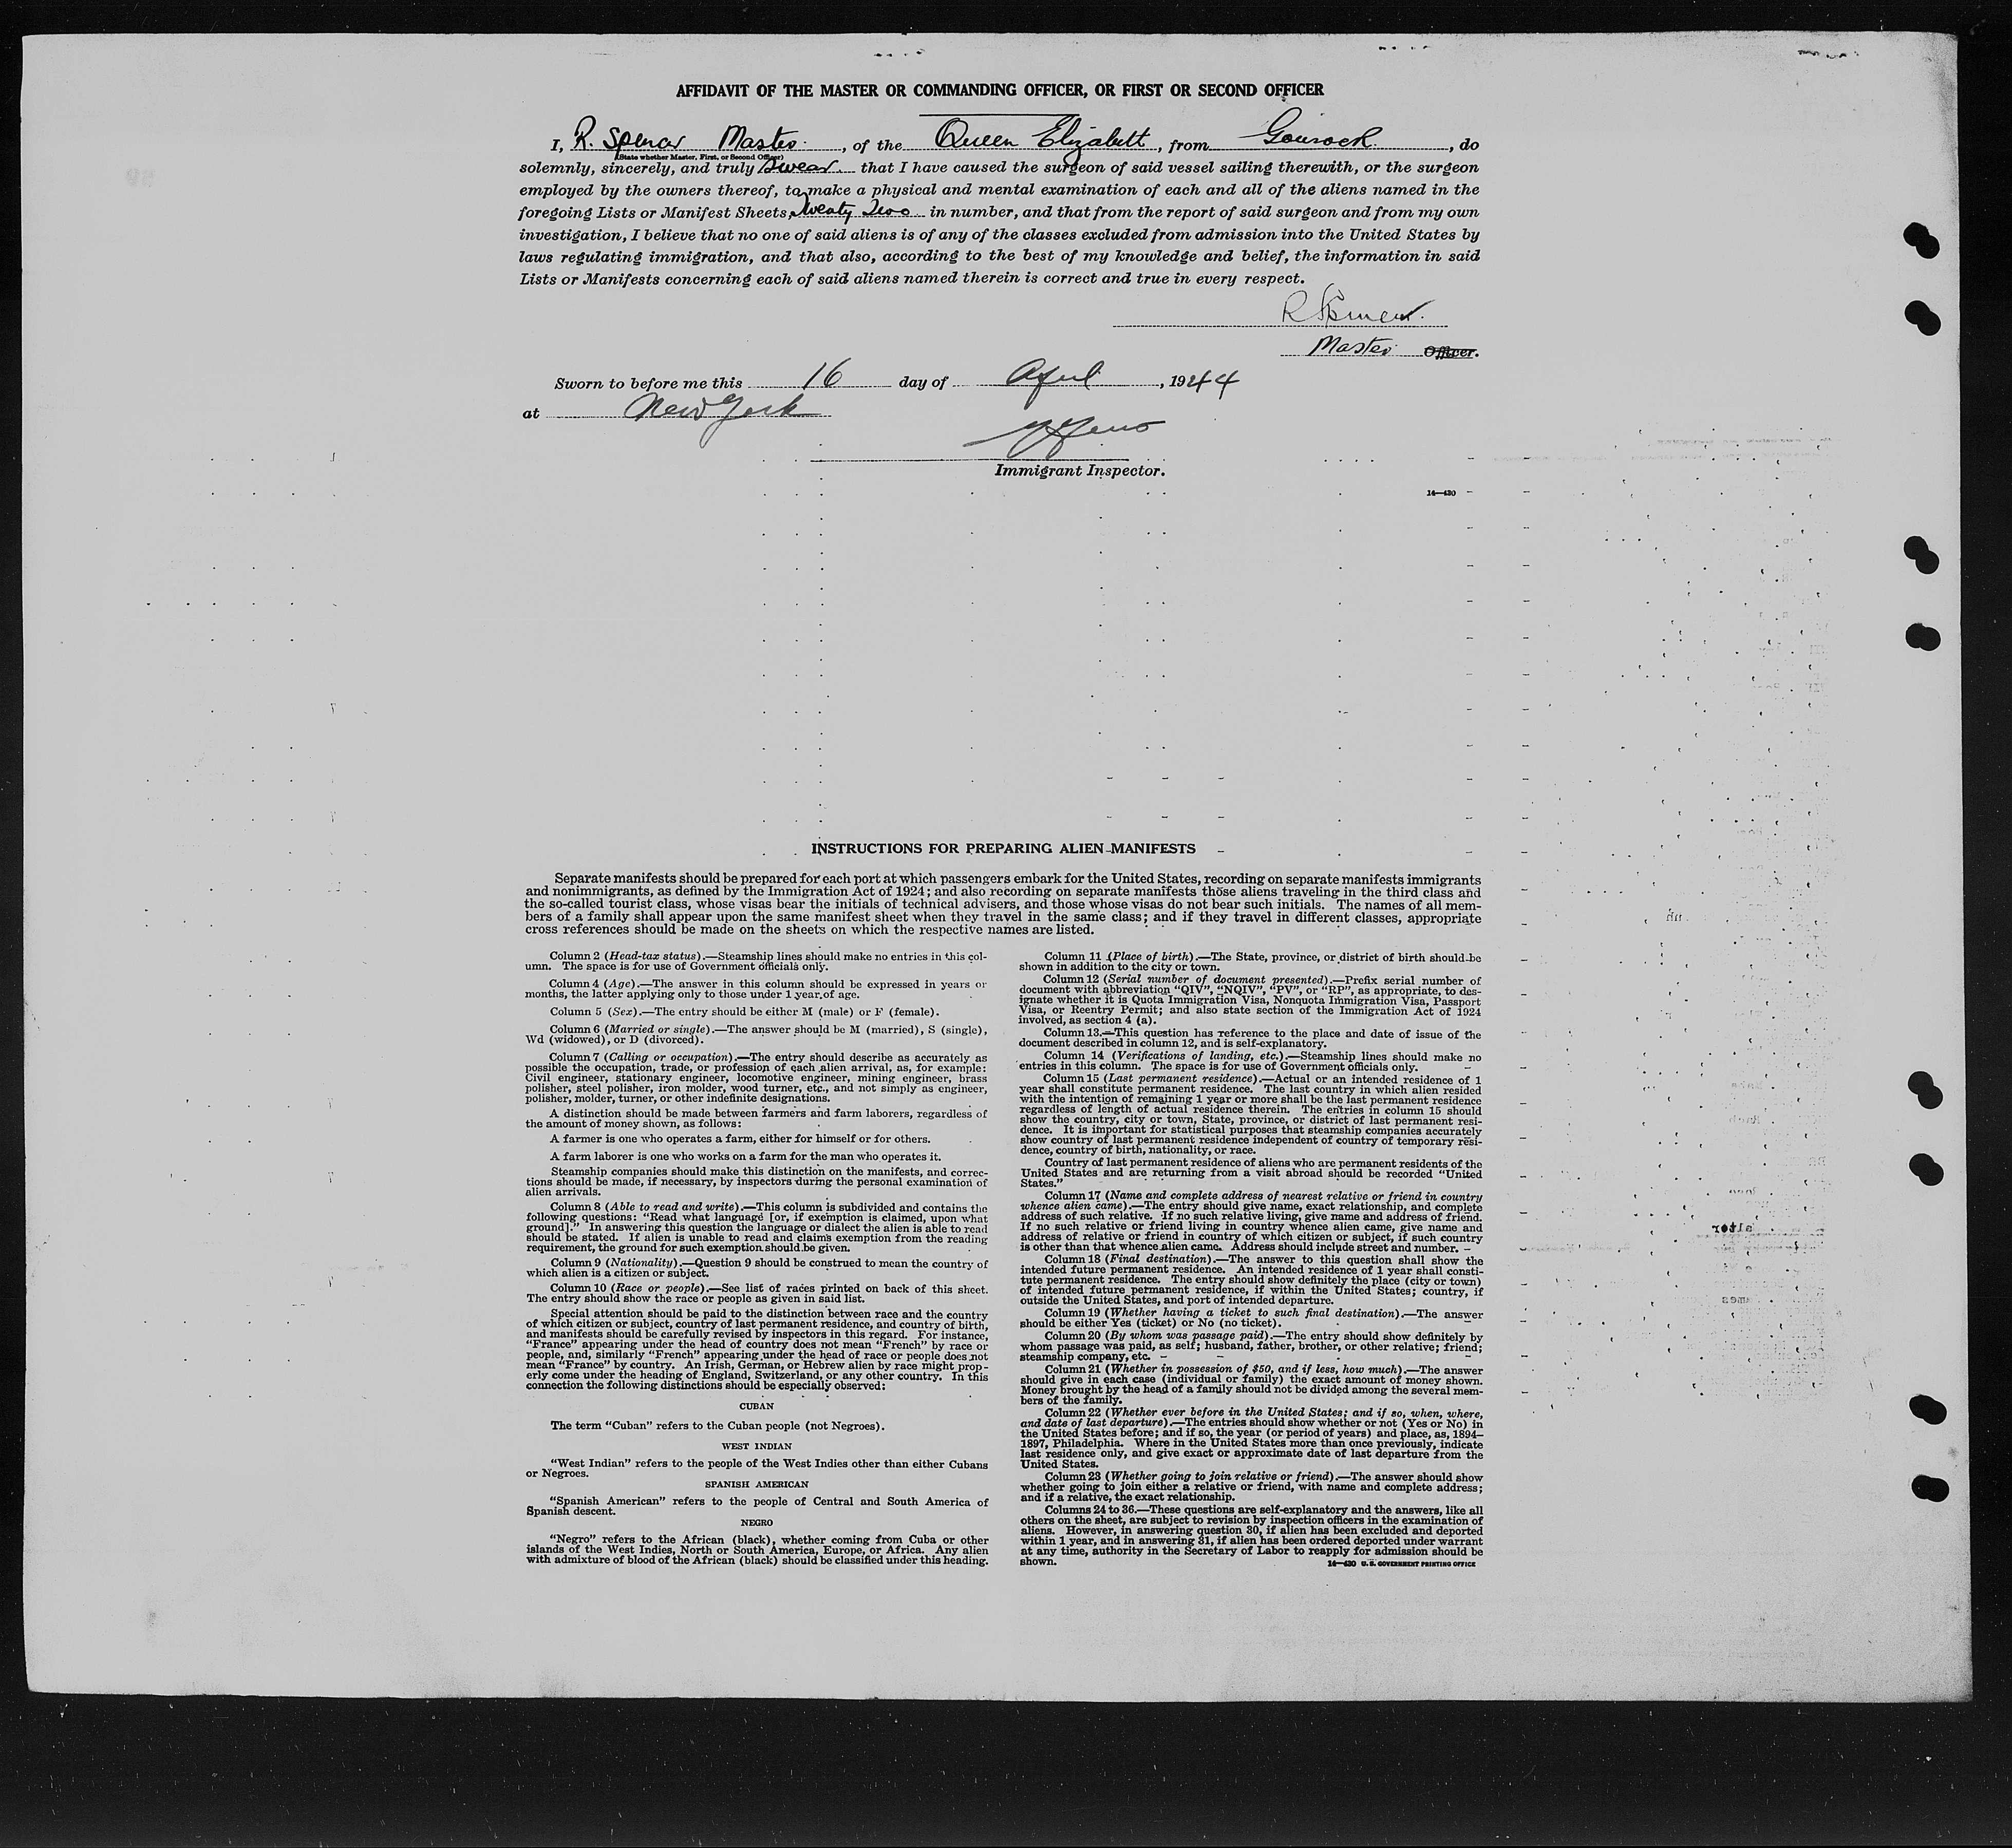 AFFIDAVIT OF THE MASTER OR COMMANDING OFFICER, OR FIRST OR SECOND OFFICER
I, R. Spencer Master, of the Queen Elizabeth, from Gourock, do
(State whether Master, First, or Second Officer)
solemnly, sincerely, and truly Swear that I have caused the surgeon of said vessel sailing therewith, or the surgeon
employed by the owners thereof, to make a physical and mental examination of each and all of the aliens named in the
foregoing Lists or Manifest Sheets, Twenty Two in number, and that from the report of said surgeon and from my own
investigation, I believe that no one of said aliens is of any of the classes excluded from admission into the United States by
laws regulating immigration, and that also, according to the best of my knowledge and belief, the information in said
Lists or Manifests concerning each of said aliens named therein is correct and true in every respect.
R Spencer.
Master Officer.
Sworn to before me this 16 day of April, 1944
at New York
Immigrant Inspector.
14—430
INSTRUCTIONS FOR PREPARING ALIEN MANIFESTS
Separate manifests should be prepared for each port at which passengers embark for the United States, recording on separate manifests immigrants
and nonimmigrants, as defined by the Immigration Act of 1924; and also recording on separate manifests those aliens traveling in the third class and
the so-called tourist class, whose visas bear the initials of technical advisers, and those whose visas do not bear such initials. The names of all mem-
bers of a family shall appear upon the same manifest sheet when they travel in the same class; and if they travel in different classes, appropriate
cross references should be made on the sheets on which the respective names are listed.
Column 2 (Head-tax status).—Steamship lines should make no entries in this col-
umn. The space is for use of Government officials only.
Column 4 (Age).—The answer in this column should be expressed in years or
months, the latter applying only to those under 1 year of age.
Column 5 (Sex).—The entry should be either M (male) or F (female).
Column 6 (Married or single).—The answer should be M (married), S (single),
Wd (widowed), or D (divorced).
Column 7 (Calling or occupation).—The entry should describe as accurately as
possible the occupation, trade, or profession of each alien arrival, as, for example:
Civil engineer, stationary engineer, locomotive engineer, mining engineer, brass
polisher, steel polisher, iron molder, wood turner, etc., and not simply as engineer,
polisher, molder, turner, or other indefinite designations.
A distinction should be made between farmers and farm laborers, regardless of
the amount of money shown, as follows:
A farmer is one who operates a farm, either for himself or for others.
A farm laborer is one who works on a farm for the man who operates it.
Steamship companies should make this distinction on the manifests, and correc-
tions should be made, if necessary, by inspectors during the personal examination of
alien arrivals.
Column 8 (Able to read and write).—This column is subdivided and contains the
following questions: "Read what language [or, if exemption is claimed, upon what
ground]." In answering this question the language or dialect the alien is able to read
should be stated. If alien is unable to read and claims exemption from the reading
requirement, the ground for such exemption should be given.
Column 9 (Nationality).—Question 9 should be construed to mean the country of
which alien is a citizen or subject.
Column 10 (Race or people).—See list of races printed on back of this sheet.
The entry should show the race or people as given in said list.
Special attention should be paid to the distinction between race and the country
of which citizen or subject, country of last permanent residence, and country of birth,
and manifests should be carefully revised by inspectors in this regard. For instance,
"France" appearing under the head of country does not mean "French" by race or
people, and, similarly "French" appearing under the head of race or people does not
mean "France" by country. An Irish, German, or Hebrew alien by race might prop-
erly come under the heading of England, Switzerland, or any other country. In this
connection the following distinctions should be especially observed:
CUBAN
The term "Cuban" refers to the Cuban people (not Negroes).
WEST INDIAN
"West Indian" refers to the people of the West Indies other than either Cubans
or Negroes.
SPANISH AMERICAN
"Spanish American" refers to the people of Central and South America of
Spanish descent.
NEGRO
"Negro" refers to the African (black), whether coming from Cuba or other
islands of the West Indies, North or South America, Europe, or Africa. Any alien
with admixture of blood of the African (black) should be classified under this heading.
Column 11 (Place of birth).—The State, province, or district of birth should be
shown in addition to the city or town.
Column 12 (Serial number of document presented).—Prefix serial number of
document with abbreviation "QIV", "NQIV", "PV", or "RP", as appropriate, to des-
ignate whether it is Quota Immigration Visa, Nonquota Immigration Visa, Passport
Visa, or Reentry Permit; and also state section of the Immigration Act of 1924
involved, as section 4 (a).
Column 13.—This question has reference to the place and date of issue of the
document described in column 12, and is self-explanatory.
Column 14 (Verifications of landing, etc.).—Steamship lines should make no
entries in this column. The space is for use of Government officials only.
Column 15 (Last permanent residence).—Actual or an intended residence of 1
year shall constitute permanent residence. The last country in which alien resided
with the intention of remaining 1 year or more shall be the last permanent residence
regardless of length of actual residence therein. The entries in column 15 should
show the country, city or town, State, province, or district of last permanent resi-
dence. It is important for statistical purposes that steamship companies accurately
show country of last permanent residence independent of country of temporary resi-
dence, country of birth, nationality, or race.
Country of last permanent residence of aliens who are permanent residents of the
United States and are returning from a visit abroad should be recorded "United
States."
Column 17 (Name and complete address of nearest relative or friend in country
whence alien came).—The entry should give name, exact relationship, and complete
address of such relative. If no such relative living, give name and address of friend.
If no such relative or friend living in country whence alien came, give name and
address of relative or friend in country of which citizen or subject, if such country
is other than that whence alien came. Address should include street and number.
Column 18 (Final destination).—The answer to this question shall show the
intended future permanent residence. An intended residence of 1 year shall consti-
tute permanent residence. The entry should show definitely the place (city or town)
of intended future permanent residence, if within the United States; country, if
outside the United States, and port of intended departure.
Column 19 (Whether having a ticket to such final destination).—The answer
should be either Yes (ticket) or No (no ticket).
Column 20 (By whom was passage paid).—The entry should show definitely by
whom passage was paid, as self; husband, father, brother, or other relative; friend;
steamship company, etc.
Column 21 (Whether in possession of $50, and if less, how much).—The answer
should give in each case (individual or family) the exact amount of money shown.
Money brought by the head of a family should not be divided among the several mem-
bers of the family.
Column 22 (Whether ever before in the United States; and if so, when, where,
and date of last departure).—The entries should show whether or not (Yes or No) in
the United States before; and if so, the year (or period of years) and place, as, 1894–
1897, Philadelphia. Where in the United States more than once previously, indicate
last residence only, and give exact or approximate date of last departure from the
United States.
Column 23 (Whether going to join relative or friend).—The answer should show
whether going to join either a relative or friend, with name and complete address;
and if a relative, the exact relationship.
Columns 24 to 36.—These questions are self-explanatory and the answers, like all
others on the sheet, are subject to revision by inspection officers in the examination of
aliens. However, in answering question 30, if alien has been excluded and deported
within 1 year, and in answering 31, if alien has been ordered deported under warrant
at any time, authority in the Secretary of Labor to reapply for admission should be
shown.
14—430 U. S. GOVERNMENT PRINTING OFFICE